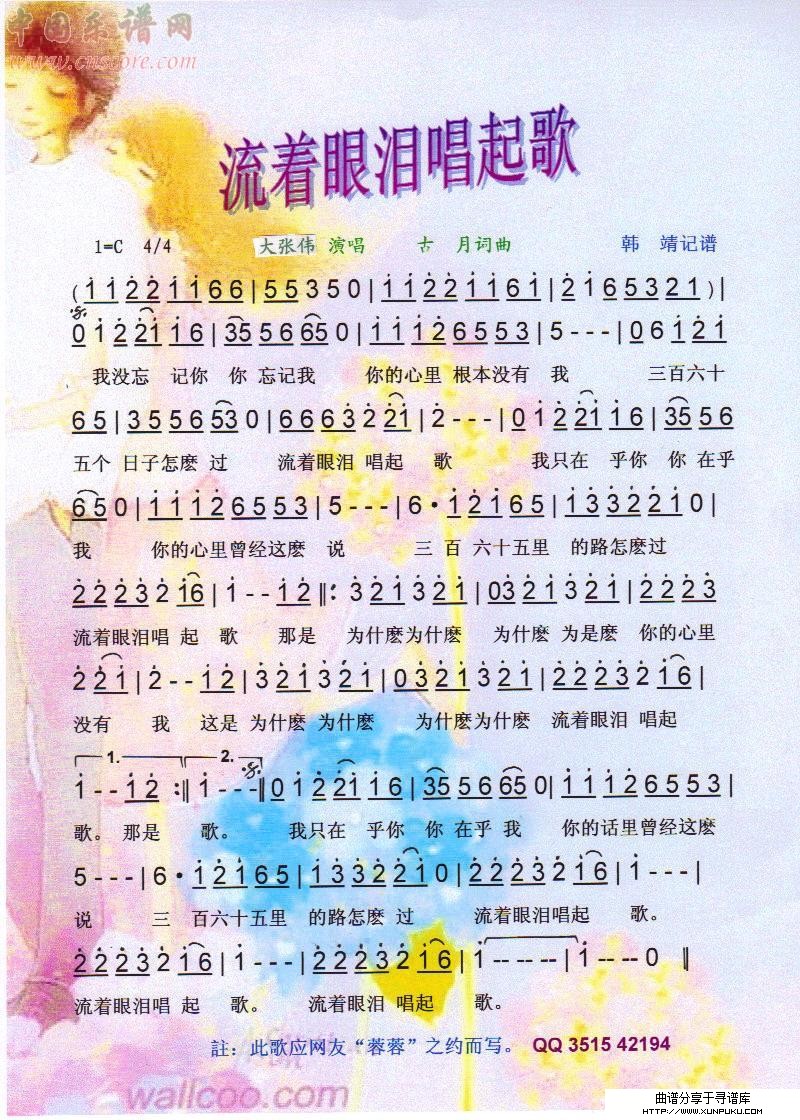 中国乐谱网
www.cnscore.com
流着眼泪唱起歌
1=C 4/4 大张伟 演唱 古 月词曲 韩 靖记谱
(1 1 2 2 1 1 6 6 | 5 5 3 5 0 | 1 1 2 2 1 1 6 1 | 2 1 6 5 3 2 1 ) |
0 1 2 2 1 1 6 | 3 5 5 6 6 5 0 | 1 1 1 2 6 5 5 3 | 5 - - - | 0 6 1 2 1
我没忘 记你 你 忘记我 你的心里 根本没有 我 三百六十
6 5 | 3 5 5 6 5 3 0 | 6 6 6 3 2 2 1 | 2 - - - | 0 1 2 2 1 1 6 | 3 5 5 6
五个 日子怎麽 过 流着眼泪 唱起 歌 我只在 乎你 你 在乎
6 5 0 | 1 1 1 2 6 5 5 3 | 5 - - - | 6 · 1 2 1 6 5 | 1 3 3 2 2 1 0 |
我 你的心里曾经这麽 说 三 百 六十五里 的路怎麽过
2 2 2 3 2 1 6 | 1 - - 1 2 ‖: 3 2 1 3 2 1 | 0 3 2 1 3 2 1 | 2 2 2 3
流着眼泪唱 起 歌 那是 为什麽为什麽 为什麽 为是麽 你的心里
2 2 1 | 2 - - 1 2 | 3 2 1 3 2 1 | 0 3 2 1 3 2 1 | 2 2 2 3 2 1 6 |
没有 我 这是 为什麽 为什麽 为什麽为什麽 流着眼泪 唱起
1. 2.
1 - - 1 2 :‖ 1 - - - ‖ 0 1 2 2 1 1 6 | 3 5 5 6 6 5 0 | 1 1 1 2 6 5 5 3 |
歌。那是 歌。 我只在 乎你 你 在乎 我 你的话里曾经这麽
5 - - - | 6 · 1 2 1 6 5 | 1 3 3 2 2 1 0 | 2 2 2 3 2 1 6 | 1 - - - |
说 三 百六十五里 的路怎麽 过 流着眼泪唱起 歌。
2 2 2 3 2 1 6 | 1 - - - | 2 2 2 3 2 1 6 | 1 - - - | 1 - - 0 ‖
流着眼泪唱 起 歌。 流着眼泪 唱起 歌。
註：此歌应网友“蓉蓉”之约而写。 QQ 3515 42194
wallcoo.com
曲谱分享于寻谱库
HTTP://WWW.XUNPUKU.COM